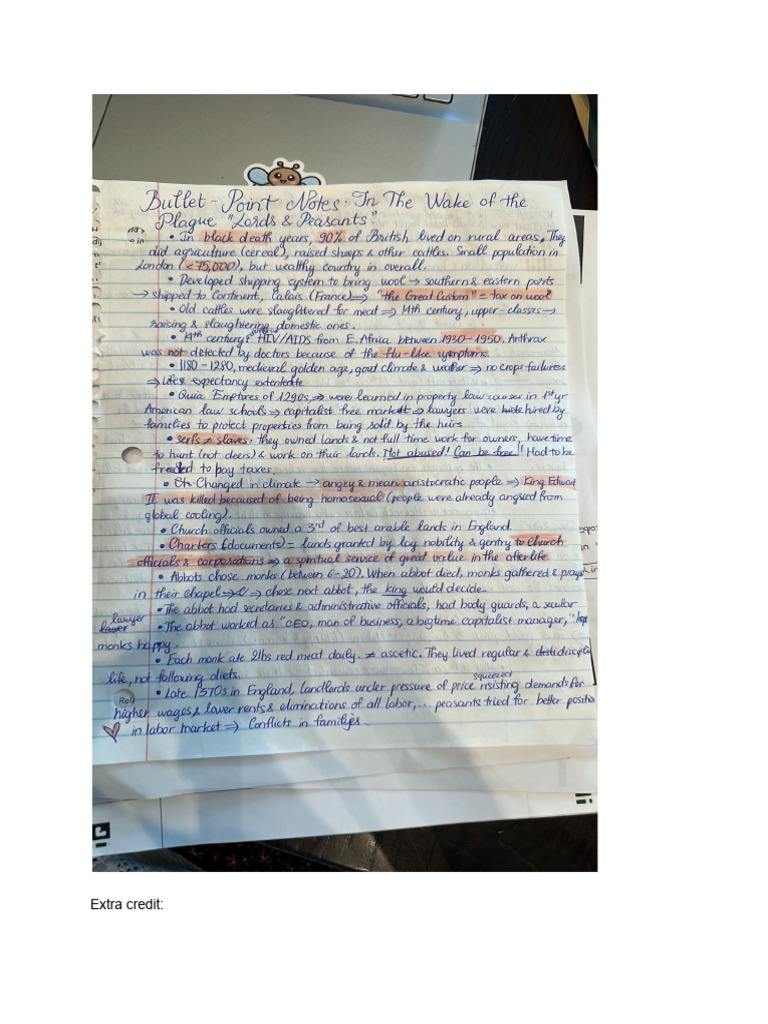 Bullet-Point Notes: In The Wake of the
Plague "Lords & Peasants"
• In black death years, 90% of British lived on rural areas. They
did agriculture (cereal), raised sheeps & other cattles. Small population in
London (<75,000), but wealthy country in overall.
• Developed shipping system to bring wool → southern & eastern ports
→ shipped to Continent, Calais (France) ⇒ "the Great Custom" = tax on wool
• Old cattles were slaughtered for meat ⇒ 14th century, upper-classes →
raising & slaughtering domestic ones.
• 14th century: HIV/AIDS from E. Africa between 1930-1950. Anthrax
was not detected by doctors because of the flu-like symptoms.
• 1180-1280, medieval golden age, good climate & weather ⇒ no crops failures
⇒ life expectancy
• Quia Emptures of 1290s, ⇒ were learned in property law courses in 1st yr
American law schools ⇒ capitalist free market ⇒ lawyers were hired by
families to protect properties from being sold by the heirs
• serfs ≠ slaves. they owned lands & not full time work for owners, have time
to hunt (not deers) & work on their lands. Not abused! Can be free!! Had to be
to pay taxes.
• Changed in climate → angry & mean aristocratic people ⇒ King Edward
II was killed becaused of being homosexual (people were already angried from
global cooling).
• Church officials owned a 3rd of best arable lands in England.
• Charters (documents) = lands granted by lay nobility & gentry to Church
officials & corporations ⇒ a spiritual service of great value in the afterlife
• Abbots chose monks (between 6-20). When abbot died, monks gathered & prays
in their chapel ⇒ chose next abbot, the king would decide.
• The abbot had secretaries & administrative officials, had body guards, a secular
lawyer
• The abbot worked as "CEO, man of business, a bigtime capitalist manager," kept
monks happy.
• Each monk ate 2lbs red meat daily. ≠ ascetic. They lived regular &
life, not following diets.
squeezed
• Late 1370s in England, landlords under pressure of price risisting demands for
higher wages & lower rents & eliminations of all labor,... peasants tried for better position
in labor market ⇒ Conflicts in families
Extra credit: